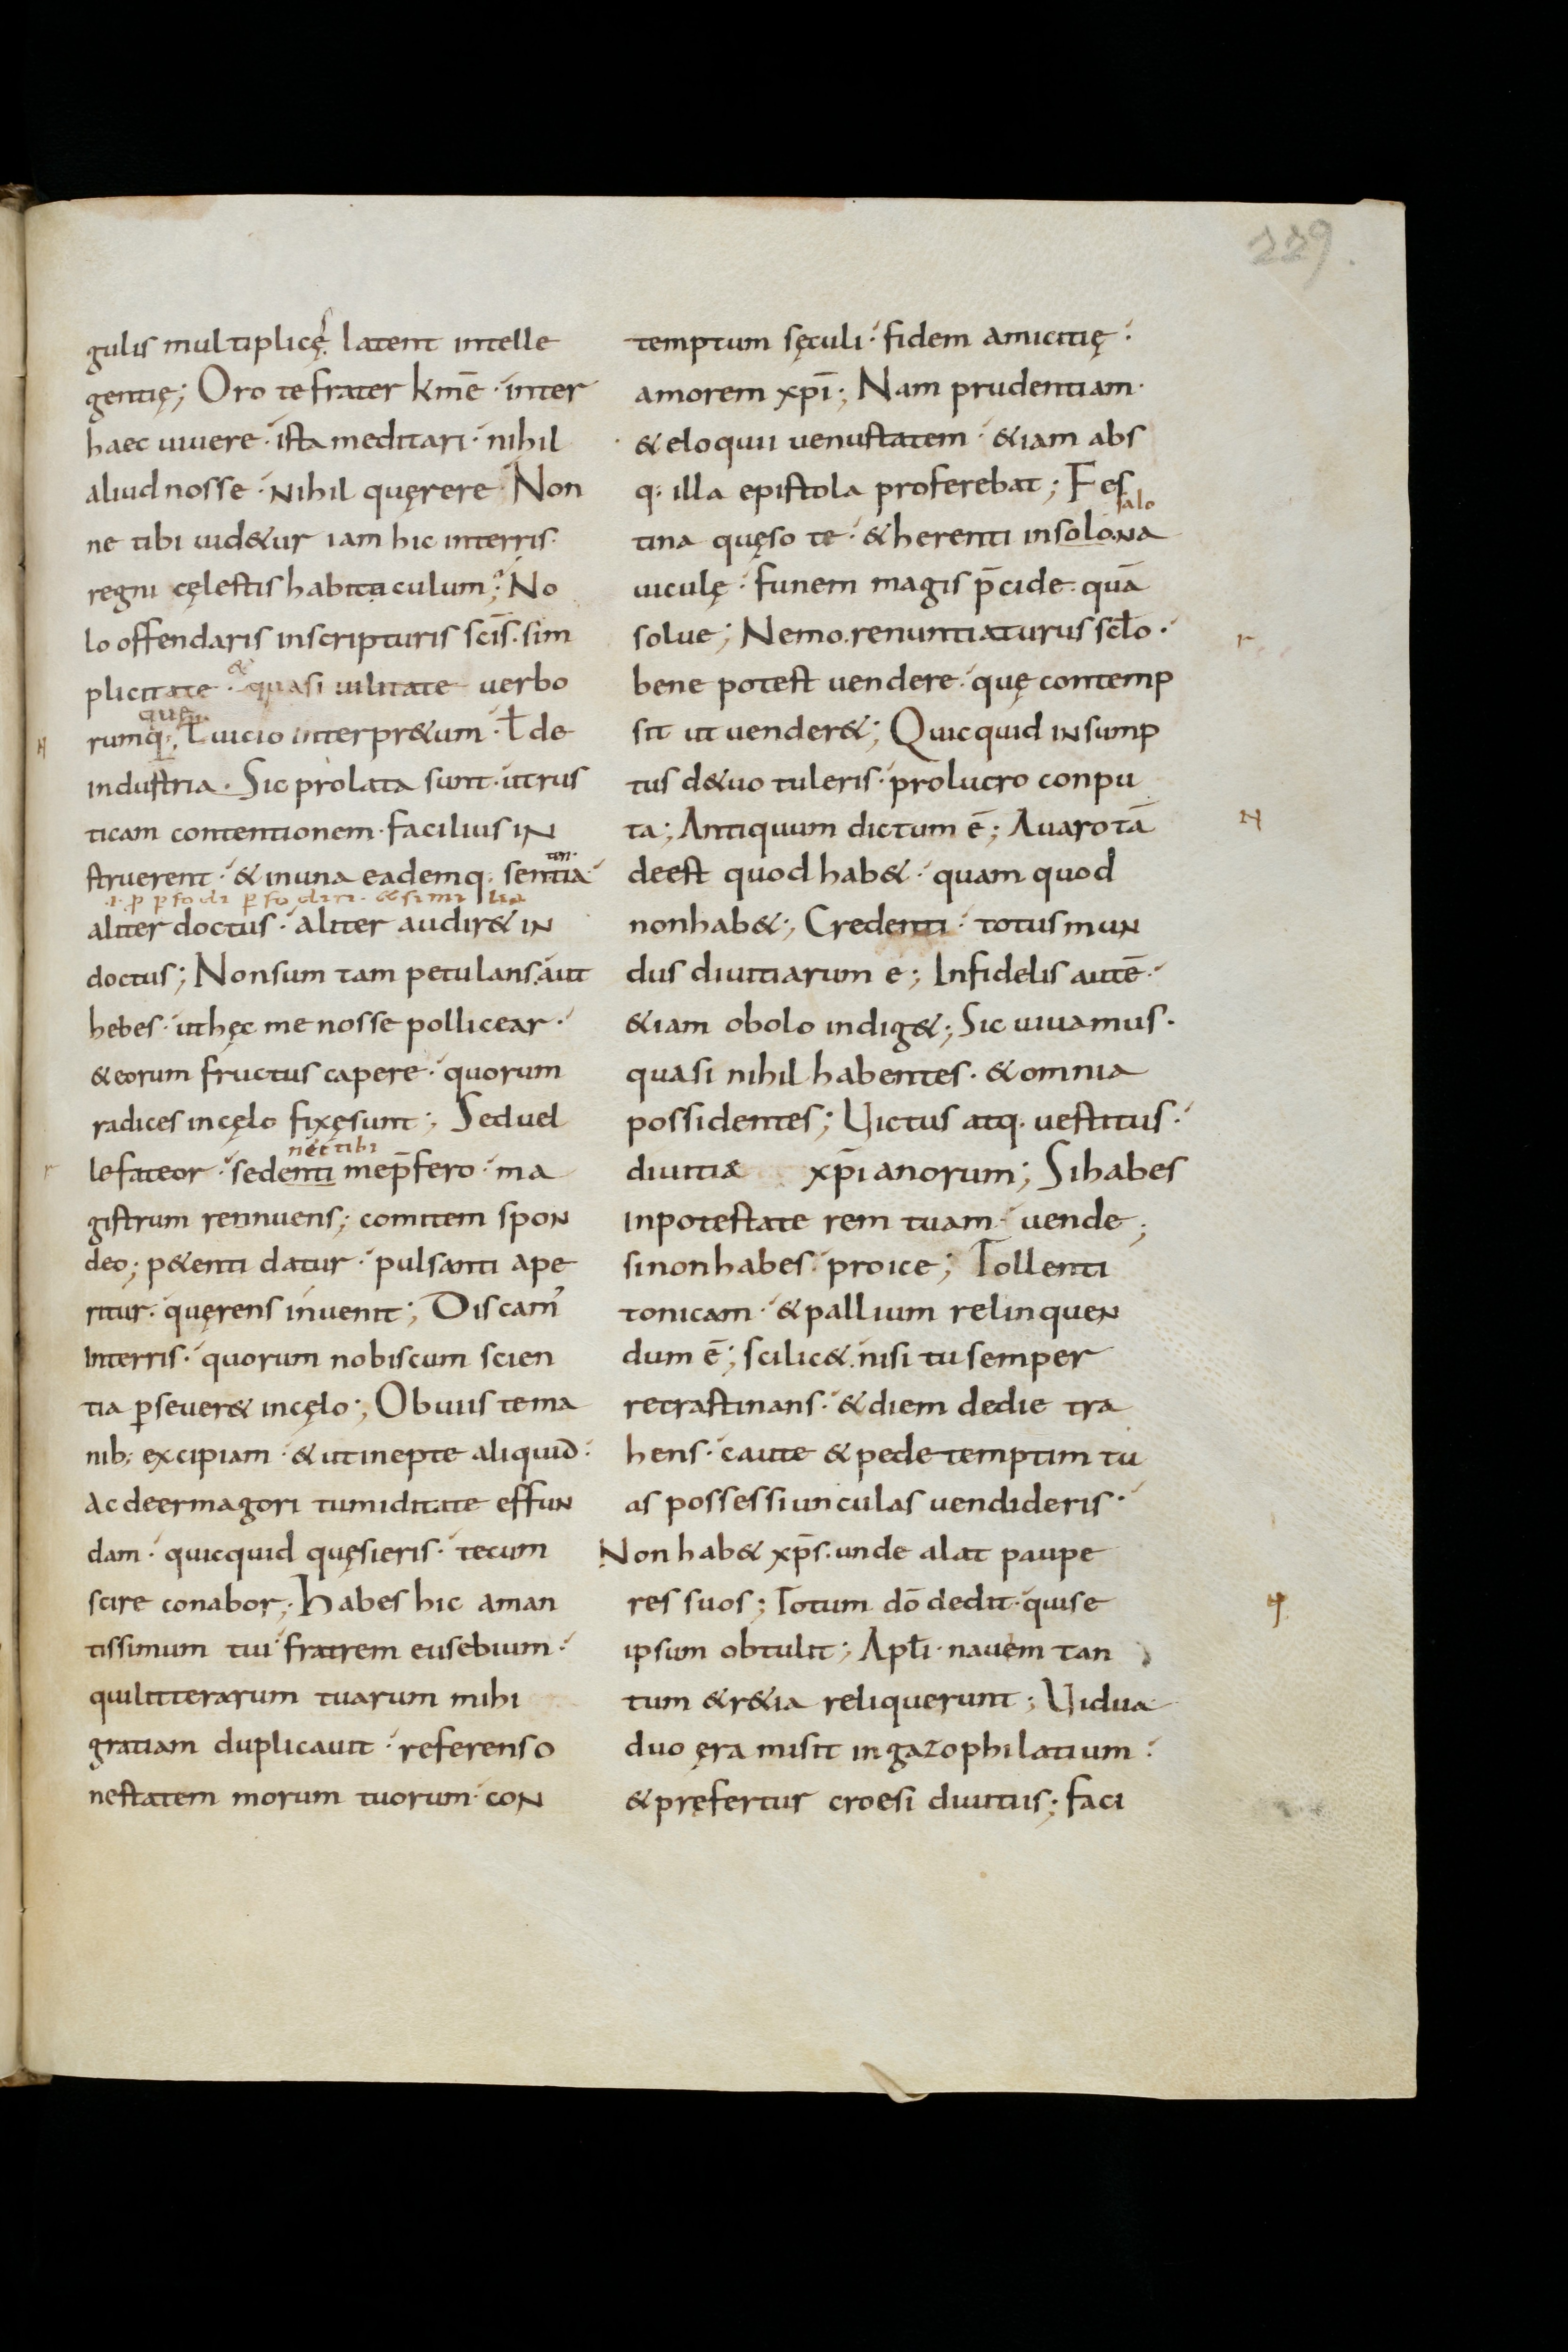 229.
gulis multiplicę latent intelle
gentię; Oro te frater kmē · inter
haec uiuere · ista meditari · nihil
aliud nosse · Nihil quęrere · Non
ne tibi uid&ur iam hic interris ·
regni cęlestis habitaculum; No
lo offendaris inscripturis scīs · sim
&
plicitate · quasi uilitate uerbo
quę
rumq: ł uicio interpr&um · ł de
industria · Sic prolata sunt · ut rus
ticam contentionem · facilius iN
struerent · & inuna eademq: sentia
.i. p̱ p̱fodi p̱fodiri · & simi lia
aliter doctus · aliter audir& iN
doctus; Non sum tam petulans · aut
hebes · ut hęc me nosse pollicear ·
& eorum fructus capere · quorum
radices in cęlo fixę sunt; Sed uel
nec tibi
le fateor · sedenti me p̄fero · ma
gistrum rennuens; comitem spoN
deo; p&enti datur · pulsanti ape
ritur · quęrens inuenit; Discam'
Interris · quorum nobiscum scien
tia p̱seuer& in cęlo; Obuiis te ma
nib; excipiam · & ut inepte aliquid ·
Ac deermagori tumiditate effuN
dam · quicquid quęsieris · tecum
scire conabor; Habes hic aman
tissimum tui fratrem eusebium ·
qui litterarum tuarum mihi
gratiam duplicauit · referens o
nestatem morum tuorum · coN
temptum sęculi · fidem amicitię ·
amorem xp̄i; Nam prudentiam ·
& eloquii uenustatem · &iam abs
q: illa epistola proferebat; Fes
salo
tina quęso te · & herenti insoloNa
uiculę · funem magis p̄cide · quā
solue; Nemo renuntiaturus scło ·
bene potest uendere · quę contemp
sit ut uender&; Quicquid iNsump
tus d&uo tuleris · pro lucro conpu
ta; Antiquum dictum ē; Auaro tā
deest quod hab& · quam quod
non hab&; Credenti · totus muN
dus diuitiarum e; Infidelis autē ·
&iam obolo indig&; Sic uiuamus ·
quasi nihil habentes · & omnia
possidentes; Uictus atq · uestitus ·
diuitiæ xp̄ianorum; Si habes
inpotestate rem tuam · uende;
si non habes · proice; Tollenti
tonicam · & pallium relinqueN
dum ē; scilic& · nisi tu semper
retrastinans · & diem dedie tra
hens · caute & pedetemptim tu
as possessiunculas uendideris ·
Non hab& xp̄s · unde alat paupe
res suos; Totum dō dedit · qui se
ipsum obtulit; Apłi · nauem tan
tum & r&ia reliquerunt; Uidua
duo ęra misit in gazophilatium ·
& pręfertur croesi diuitiis; faci